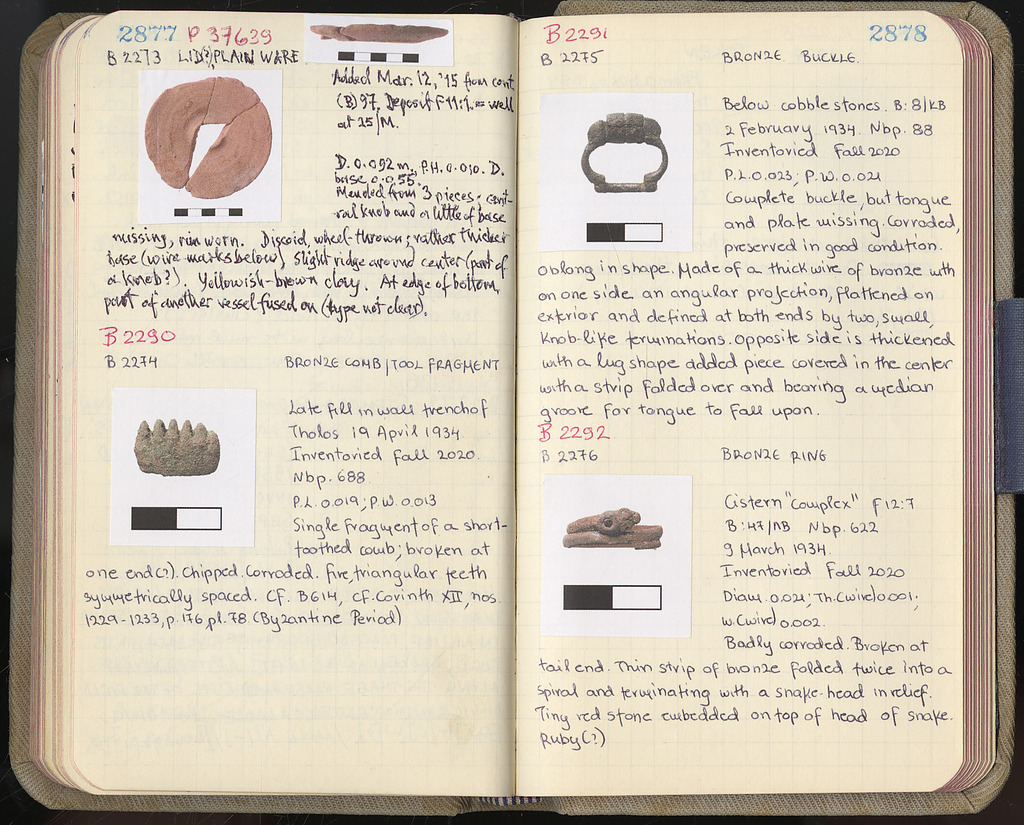 2877 P 37639
B 2273 LID(?) PLAIN WARE
Added Mar. 12, '75 from cont.
(B) 97. Deposit F 11:1. = well
at 25/M.
D. 0.092 m, P.H. 0.010. D.
base 0.0.55.
Mended from 3 pieces; cent-
ral knob and a little of base
missing, rim worn. Discoid, wheel-thrown; rather thicker
base (wire marks below), slight ridge around center (part of
a knob?). Yellowish-brown clay. At edge of bottom,
part of another vessel fused on (type not clear).
B 2290
B 2274 BRONZE COMB/TOOL FRAGMENT
Late fill in wall trench of
Tholos 19 April 1934
Inventoried Fall 2020.
Nbp. 688
P.L. 0.019; P.W. 0.013
Single fragment of a short-
toothed comb; broken at
one end(?). Chipped. Corroded. Five, triangular teeth
symmetrically spaced. Cf. B 614, cf. Corinth XII, nos.
1229-1233, p. 176, pl. 78. (Byzantine Period)
B 2291 2878
B 2275 BRONZE BUCKLE.
Below cobble stones. B: 8/KB
2 February, 1934. Nbp. 88
Inventoried Fall 2020
P.L. 0.023; P.W. 0.021
Complete buckle, but tongue
and plate missing. Corroded,
preserved in good condition.
Oblong in shape. Made of a thick wire of bronze with
on one side an angular projection, flattened on
exterior and defined at both ends by two, small,
knob-like terminations. Opposite side is thickened
with a lug shape added piece covered in the center
with a strip folded over and bearing a median
groove for tongue to fall upon.
B 2292
B 2276 BRONZE RING
Cistern "Complex" F 12:7
B: 47/ΛB Nbp. 622
9 March 1934.
Inventoried Fall 2020
Diam. 0.021; Th.(wire) 0.001;
W.(wire) 0.002.
Badly corroded. Broken at
tail end. Thin strip of bronze folded twice into a
spiral and terminating with a snake-head in relief.
Tiny red stone embedded on top of head of snake.
Ruby(?)